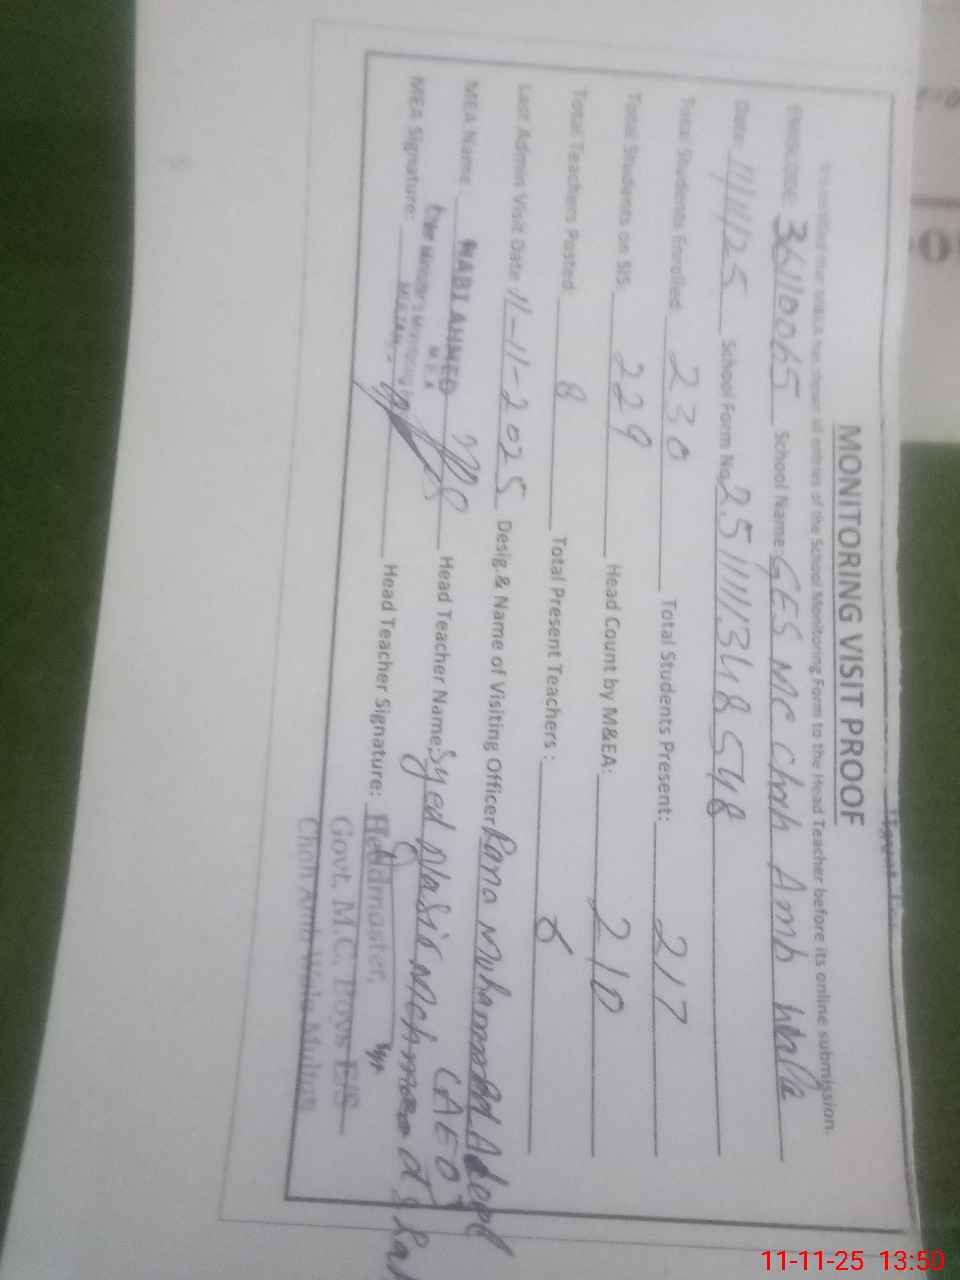 MONITORING VISIT PROOF
It is certified that M&EA has shown all entries of the School Monitoring Form to the Head Teacher before its online submission.
EMISCODE: 36110065 School Name: GES MC Chah Amb Wala
Date: 11/11/25 School Form No. 2511111348548
Total Students Enrolled: 230 Total Students Present: 217
Total Students on SIS: 229 Head Count by M&EA: 210
Total Teachers Posted: 8 Total Present Teachers: 8
Last Admin Visit Date: 11-11-2025 Desig.& Name of Visiting Officer Rana Muhammad Adeel
(AEO)
MEA Name: NABI AHMED Head Teacher Name: Syed Nasir
M.E.A
MEA Signature: MULTAN Head Teacher Signature: Headmaster,
Govt. M.C. Boys E/S
Chah Amb Wala Multan
11-11-25 13:50